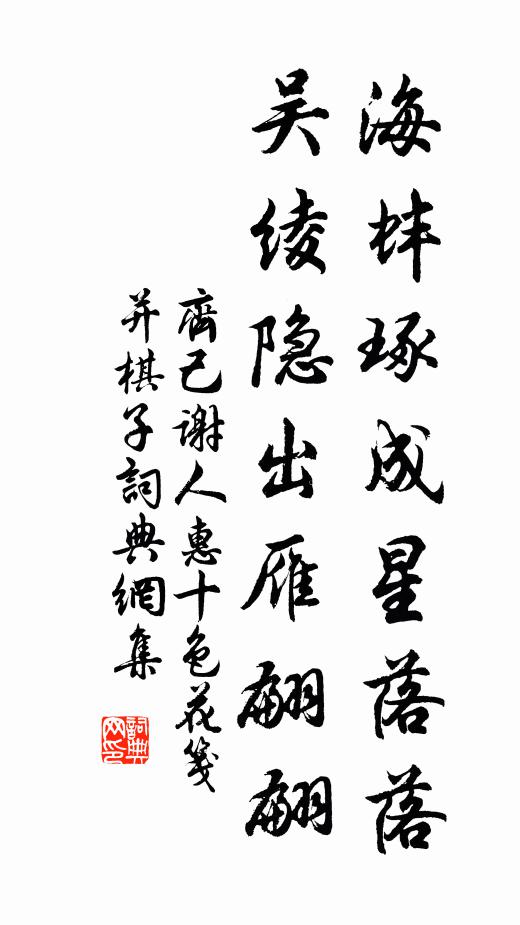 海蚌琢成星落落
吴绫隐出雁翩翩
齊己谢人惠十色花笺
并棋子詞典網集
詞典網印